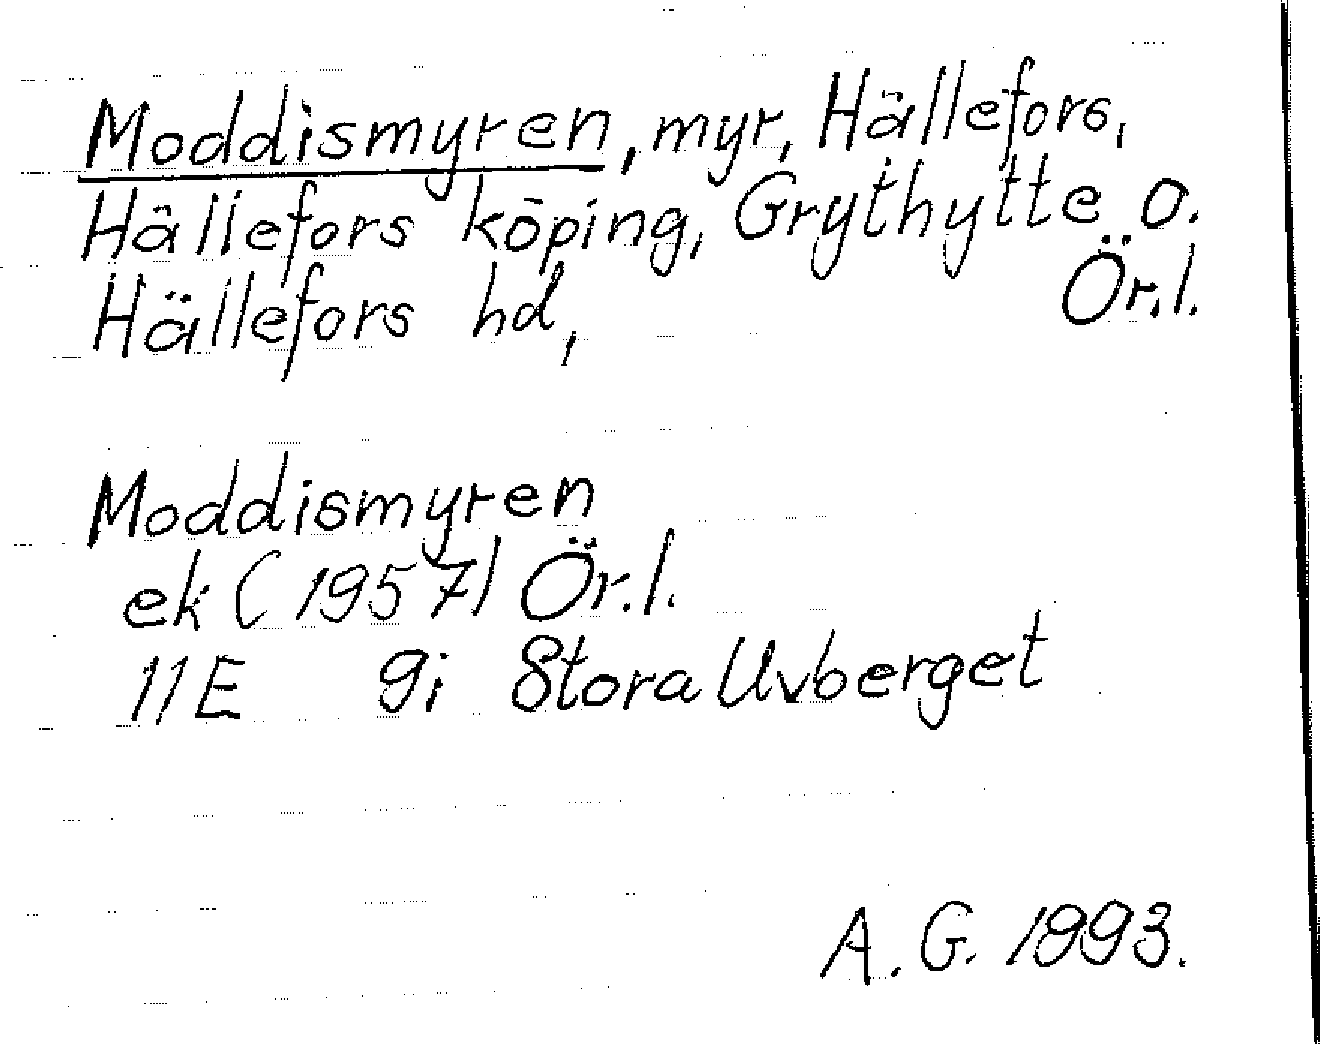 Moddismyren, myr, Hällefors,
Hällefors köping, Grythytte o.
Hällefors hd, Ör.l.
Moddismyren
ek (1957) Ör.l.
11E 9i Stora Uvberget
A.G. 1993.